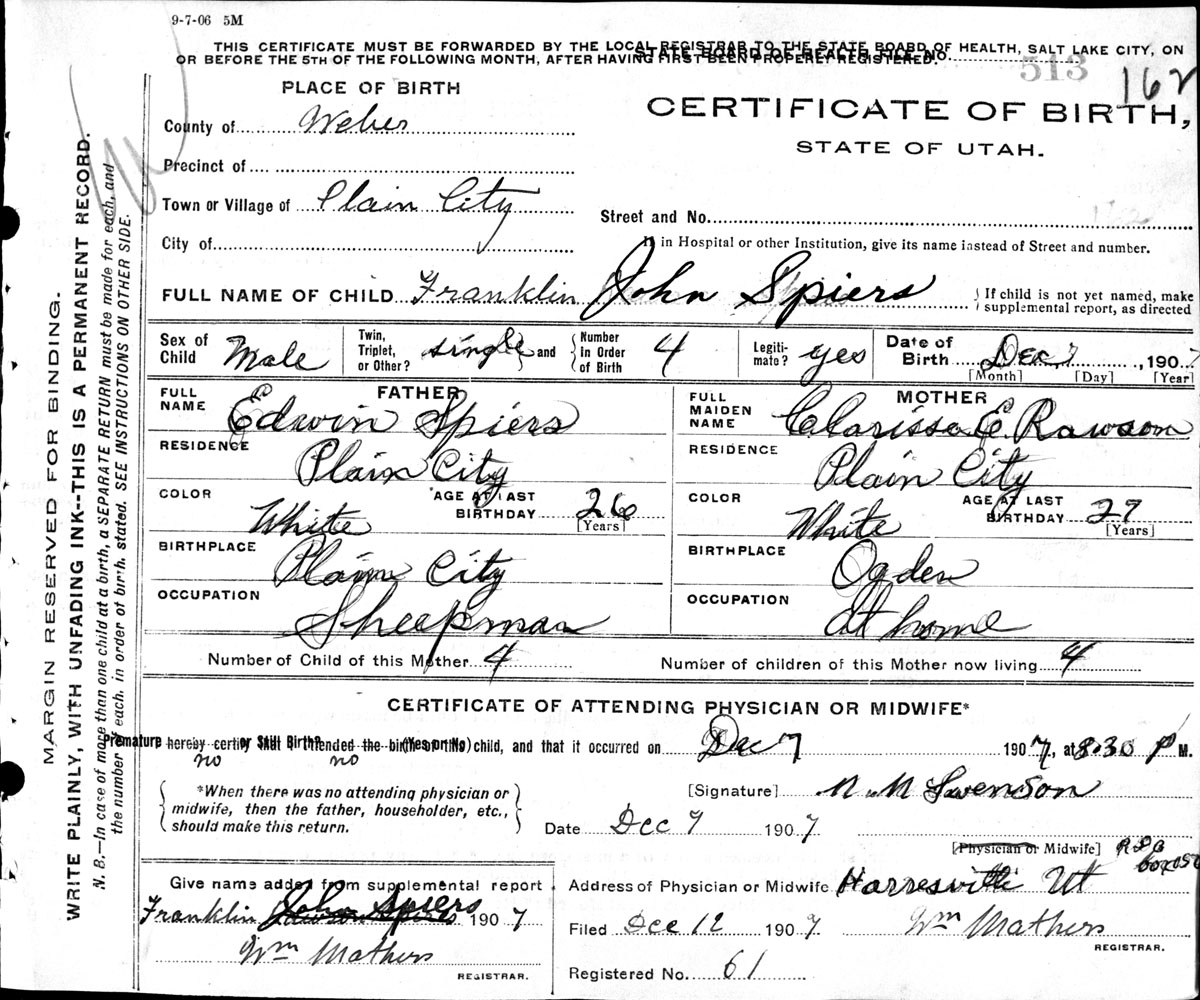 9-7-06 5M
THIS CERTIFICATE MUST BE FORWARDED BY THE LOCAL REGISTRAR TO THE STATE BOARD OF HEALTH, SALT LAKE CITY, ON
OR BEFORE THE 5TH OF THE FOLLOWING MONTH, AFTER HAVING FIRST BEEN PROPERLY REGISTERED.
STATE BOARD OF HEALTH FILE NO.
513
162
PLACE OF BIRTH
CERTIFICATE OF BIRTH,
STATE OF UTAH.
County of Weber
Precinct of
Town or Village of Plain City
Street and No.
City of
If in Hospital or other Institution, give its name instead of Street and number.
FULL NAME OF CHILD Franklin John Spiers
If child is not yet named, make
supplemental report, as directed
Sex of Child Male
Twin, Triplet, or Other? single and Number in Order of Birth 4
Legiti-mate? yes
Date of Birth Dec 7, 1907
[Month] [Day] [Year]
FATHER
FULL NAME Edwin Spiers
MOTHER
FULL MAIDEN NAME Clarissa E. Rawson
RESIDENCE Plain City
RESIDENCE Plain City
COLOR White AGE AT LAST BIRTHDAY 26 [Years]
COLOR White AGE AT LAST BIRTHDAY 27 [Years]
BIRTHPLACE Plain City
BIRTHPLACE Ogden
OCCUPATION Sheepman
OCCUPATION At home
Number of Child of this Mother 4
Number of children of this Mother now living 4
CERTIFICATE OF ATTENDING PHYSICIAN OR MIDWIFE*
hereby certify that I attended the birth of child, and that it occurred on Dec 7 1907, at 8.30 P M.
Premature or Still Birth? (Yes or No)
no no
*When there was no attending physician or
midwife, then the father, householder, etc.,
should make this return.
[Signature] N M Swenson
Date Dec 9 1907
[Physician or Midwife]
Give name added from supplemental report
Franklin John Spiers 1907
Wm Mathers
REGISTRAR.
Address of Physician or Midwife Harresville Ut
Filed Dec 12 1907 Wm Mathers
REGISTRAR.
Registered No. 61
MARGIN RESERVED FOR BINDING.
WRITE PLAINLY, WITH UNFADING INK--THIS IS A PERMANENT RECORD.
N. B.—In case of more than one child at a birth, a SEPARATE RETURN must be made for each, and
the number of each, in order of birth, stated. SEE INSTRUCTIONS ON OTHER SIDE.